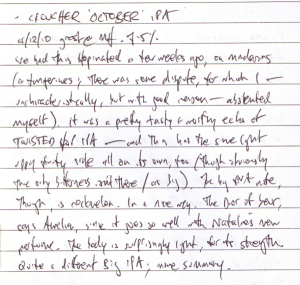 - CROUCHER 'OCTOBER' IPA
4/12/10 7.5%
we had this a few weeks ago, on madarins
(or tangerines; there was some dispute, for which I —
uncharacteristically, but with good reason — absented
myself). it was a pretty tasty & worthy echo of
TWISTED IPA — and this has the same light
fruity all on its own, too (though obviously
the only bitterness still there / as big). The big first note,
though is . In a nice way. The Poor of bear,
says Aurelia, since it goes so well with Natalie's new
perfume. The body is surprisingly light, for its strength
Quite a different Big IPA; more summery.